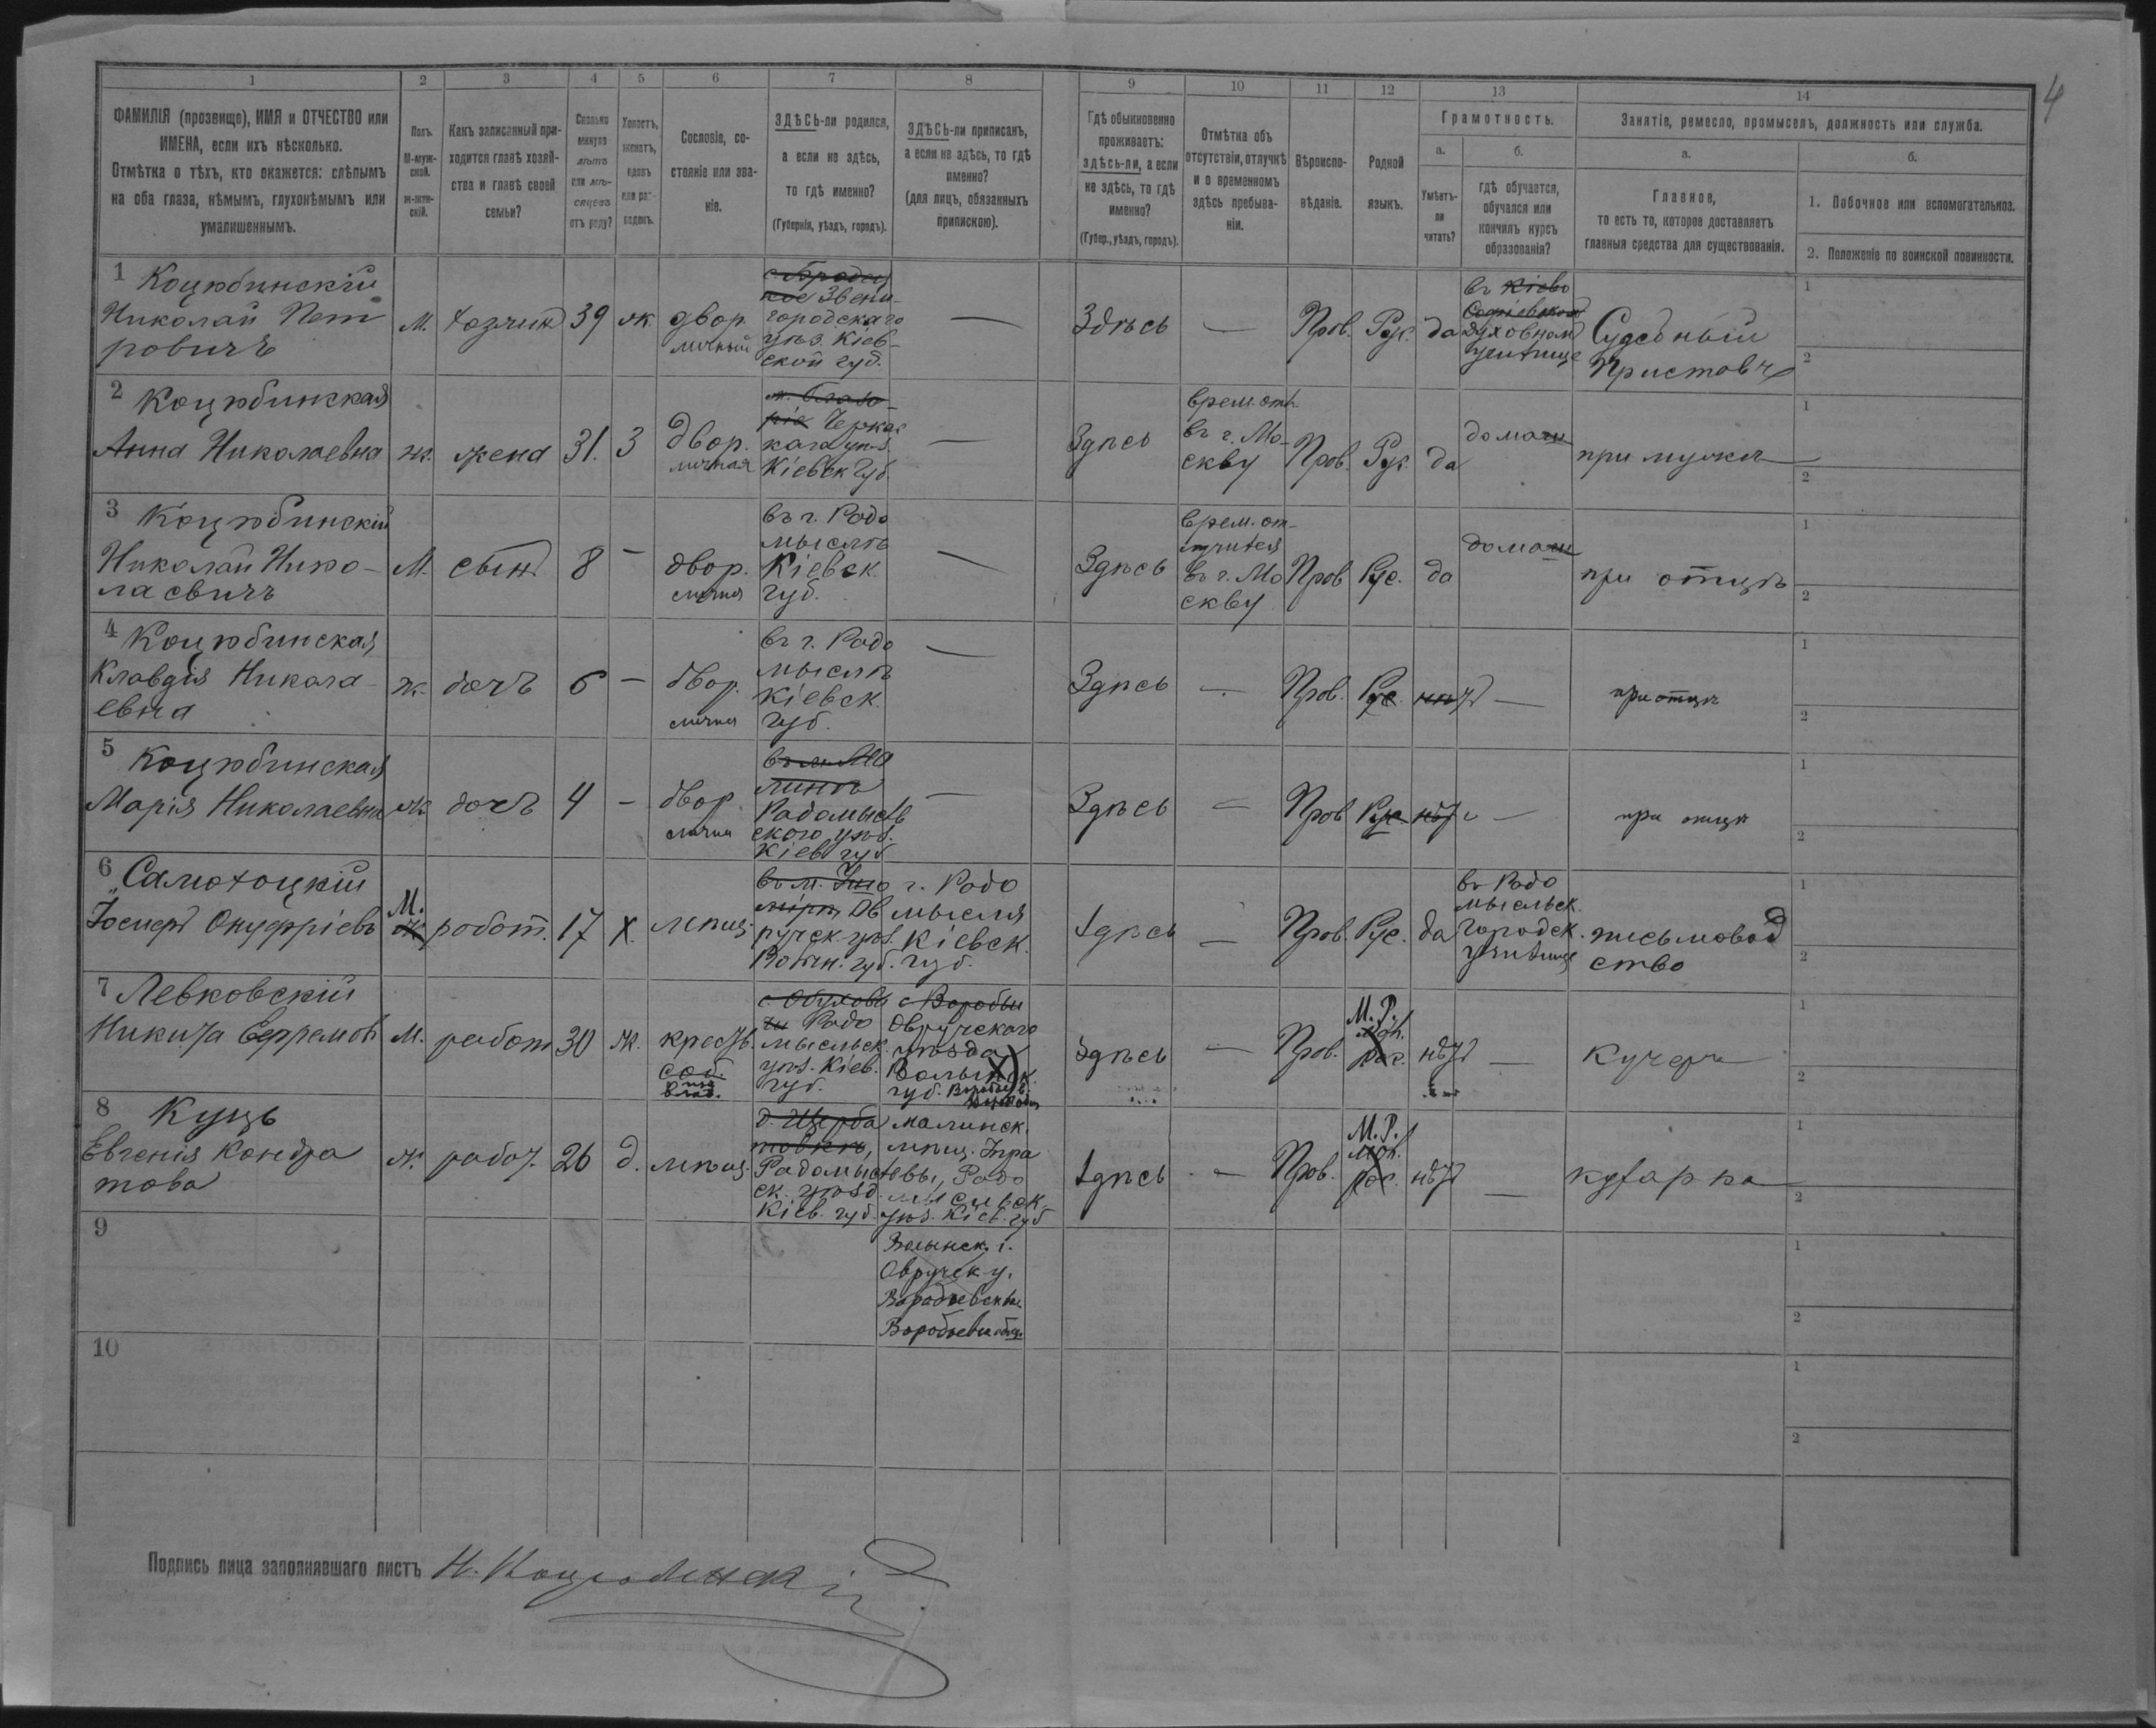 4
1 2 3 4 5 6 7 8 9 10 11 12 13 14
ФАМИЛІЯ (прозвище), ИМЯ и ОТЧЕСТВО или
ИМЕНА, если ихъ нѣсколько.
Отмѣтка о тѣхъ, кто окажется: слѣпымъ
на оба глаза, нѣмымъ, глухонѣмымъ или
умалишеннымъ.
Полъ.
М-муж-
ской.
ж-жен-
скій.
Какъ записанный при-
ходится главѣ хозяй-
ства и главѣ своей
семьи?
Сколько
минуло
лѣтъ
или мѣ-
сяцевъ
отъ роду?
Холостъ,
женатъ,
вдовъ
или раз-
веденъ.
Сословіе, со-
стояніе или зва-
ніе.
ЗДѢСЬ-ли родился,
а если не здѣсь,
то гдѣ именно?
(Губернія, уѣздъ, городъ).
ЗДѢСЬ-ли приписанъ,
а если не здѣсь, то гдѣ
именно?
(для лицъ, обязанныхъ
припискою).
Гдѣ обыкновенно
проживаетъ:
здѣсь-ли, а если
не здѣсь, то гдѣ
именно?
(Губер., уѣздъ, городъ).
Отмѣтка объ
отсутствіи, отлучкѣ
и о временномъ
здѣсь пребыва-
ніи.
Вѣроиспо-
вѣданіе.
Родной
языкъ.
Грамотность.
а.
Умѣетъ-
ли
читать?
б.
гдѣ обучается,
обучался или
кончилъ курсъ
образованія?
Занятіе, ремесло, промыселъ, должность или служба.
а.
Главное,
то есть то, которое доставляетъ
главныя средства для существованія.
б.
1. Побочное или вспомогательное.
2. Положеніе по воинской повинности.
1 Коцюбинскій
Николай Пет
ровичъ
М. хозяинъ 39 ж. двор.
личный
Звени-
городскаго
уѣз. Кіев-
ской губ.
—
Здѣсь — Прав. Рус. да
въ Кіево
Софіевском
духовномъ
училище
Судебный
Приставъ
1
2
2 Коцюбинская
Анна Николаевна
ж. жена 31. З двор.
личная
Черкас
каго уѣз.
Кіевск губ.
—
Здѣсь
врем. отл.
въ г. Мо-
скву
Прав. Рус. да домаш
при мужѣ
1
2
3 Коцюбинскій
Николай Нико-
лаевичъ
М. сынъ 8 — двор.
личн
въ г. Радо
мыслѣ
Кіевск.
губ.
—
Здѣсь
врем. от-
лучился
въ г. Мо
скву
Прав Рус. да домаш
при отцѣ
1
2
4 Коцюбинская
Клавдія Никола-
евна
ж. дочь 6 — двор.
личн
въ г. Радо
мыслѣ
Кіевск.
губ.
—
Здѣсь — Прав. Рус. нѣтъ —
при отцѣ
1
2
5 Коцюбинская
Марія Николаевна
ж дочь 4 — двор.
личн
въ м. Ма
линѣ
Радомысль
ского уѣзд.
Кіев губ
—
Здѣсь — Прав Рус нѣтъ —
при отцѣ
1
2
6 Самотоцкій
Іосифъ Онуфріевъ
М. работ. 17 х. мѣщ.
Ов
ручск. уѣз.
Волын. губ.
г. Радо
мысля
Кіевск.
губ.
здѣсь — Прав. Рус. да
въ Радо
мысльск.
городск.
училище
письмовод
ство
1
2
7 Левковскій
Никита Ефремовъ
М. работ 30 ж. крестьь.
соб.
влад.
Радо
мысльск.
уѣз. Кіев.
губ.
с Воробьи
Овручского
уѣзда
Волынск.
губ.
здѣсь — Прав. М. Р. нѣтъ —
Кучеръ
1
2
8 Куць
Евгенія Кондра
това
ж. работ. 26 д. мѣщ.
д. Щерба
товкѣ,
Радомысль
ск. уѣзд.
Кіев. губ.
малинск.
мѣщ. Упра
вы, Радо
мысльск
уѣз. Кіев. губ
здѣсь — Прав. М. Р. нѣтъ —
кухарка
1
2
9
Волынск. г.
Овручск у.
1
2
10
1
2
Подпись лица заполнявшаго листъ Н. Коцюбинскій